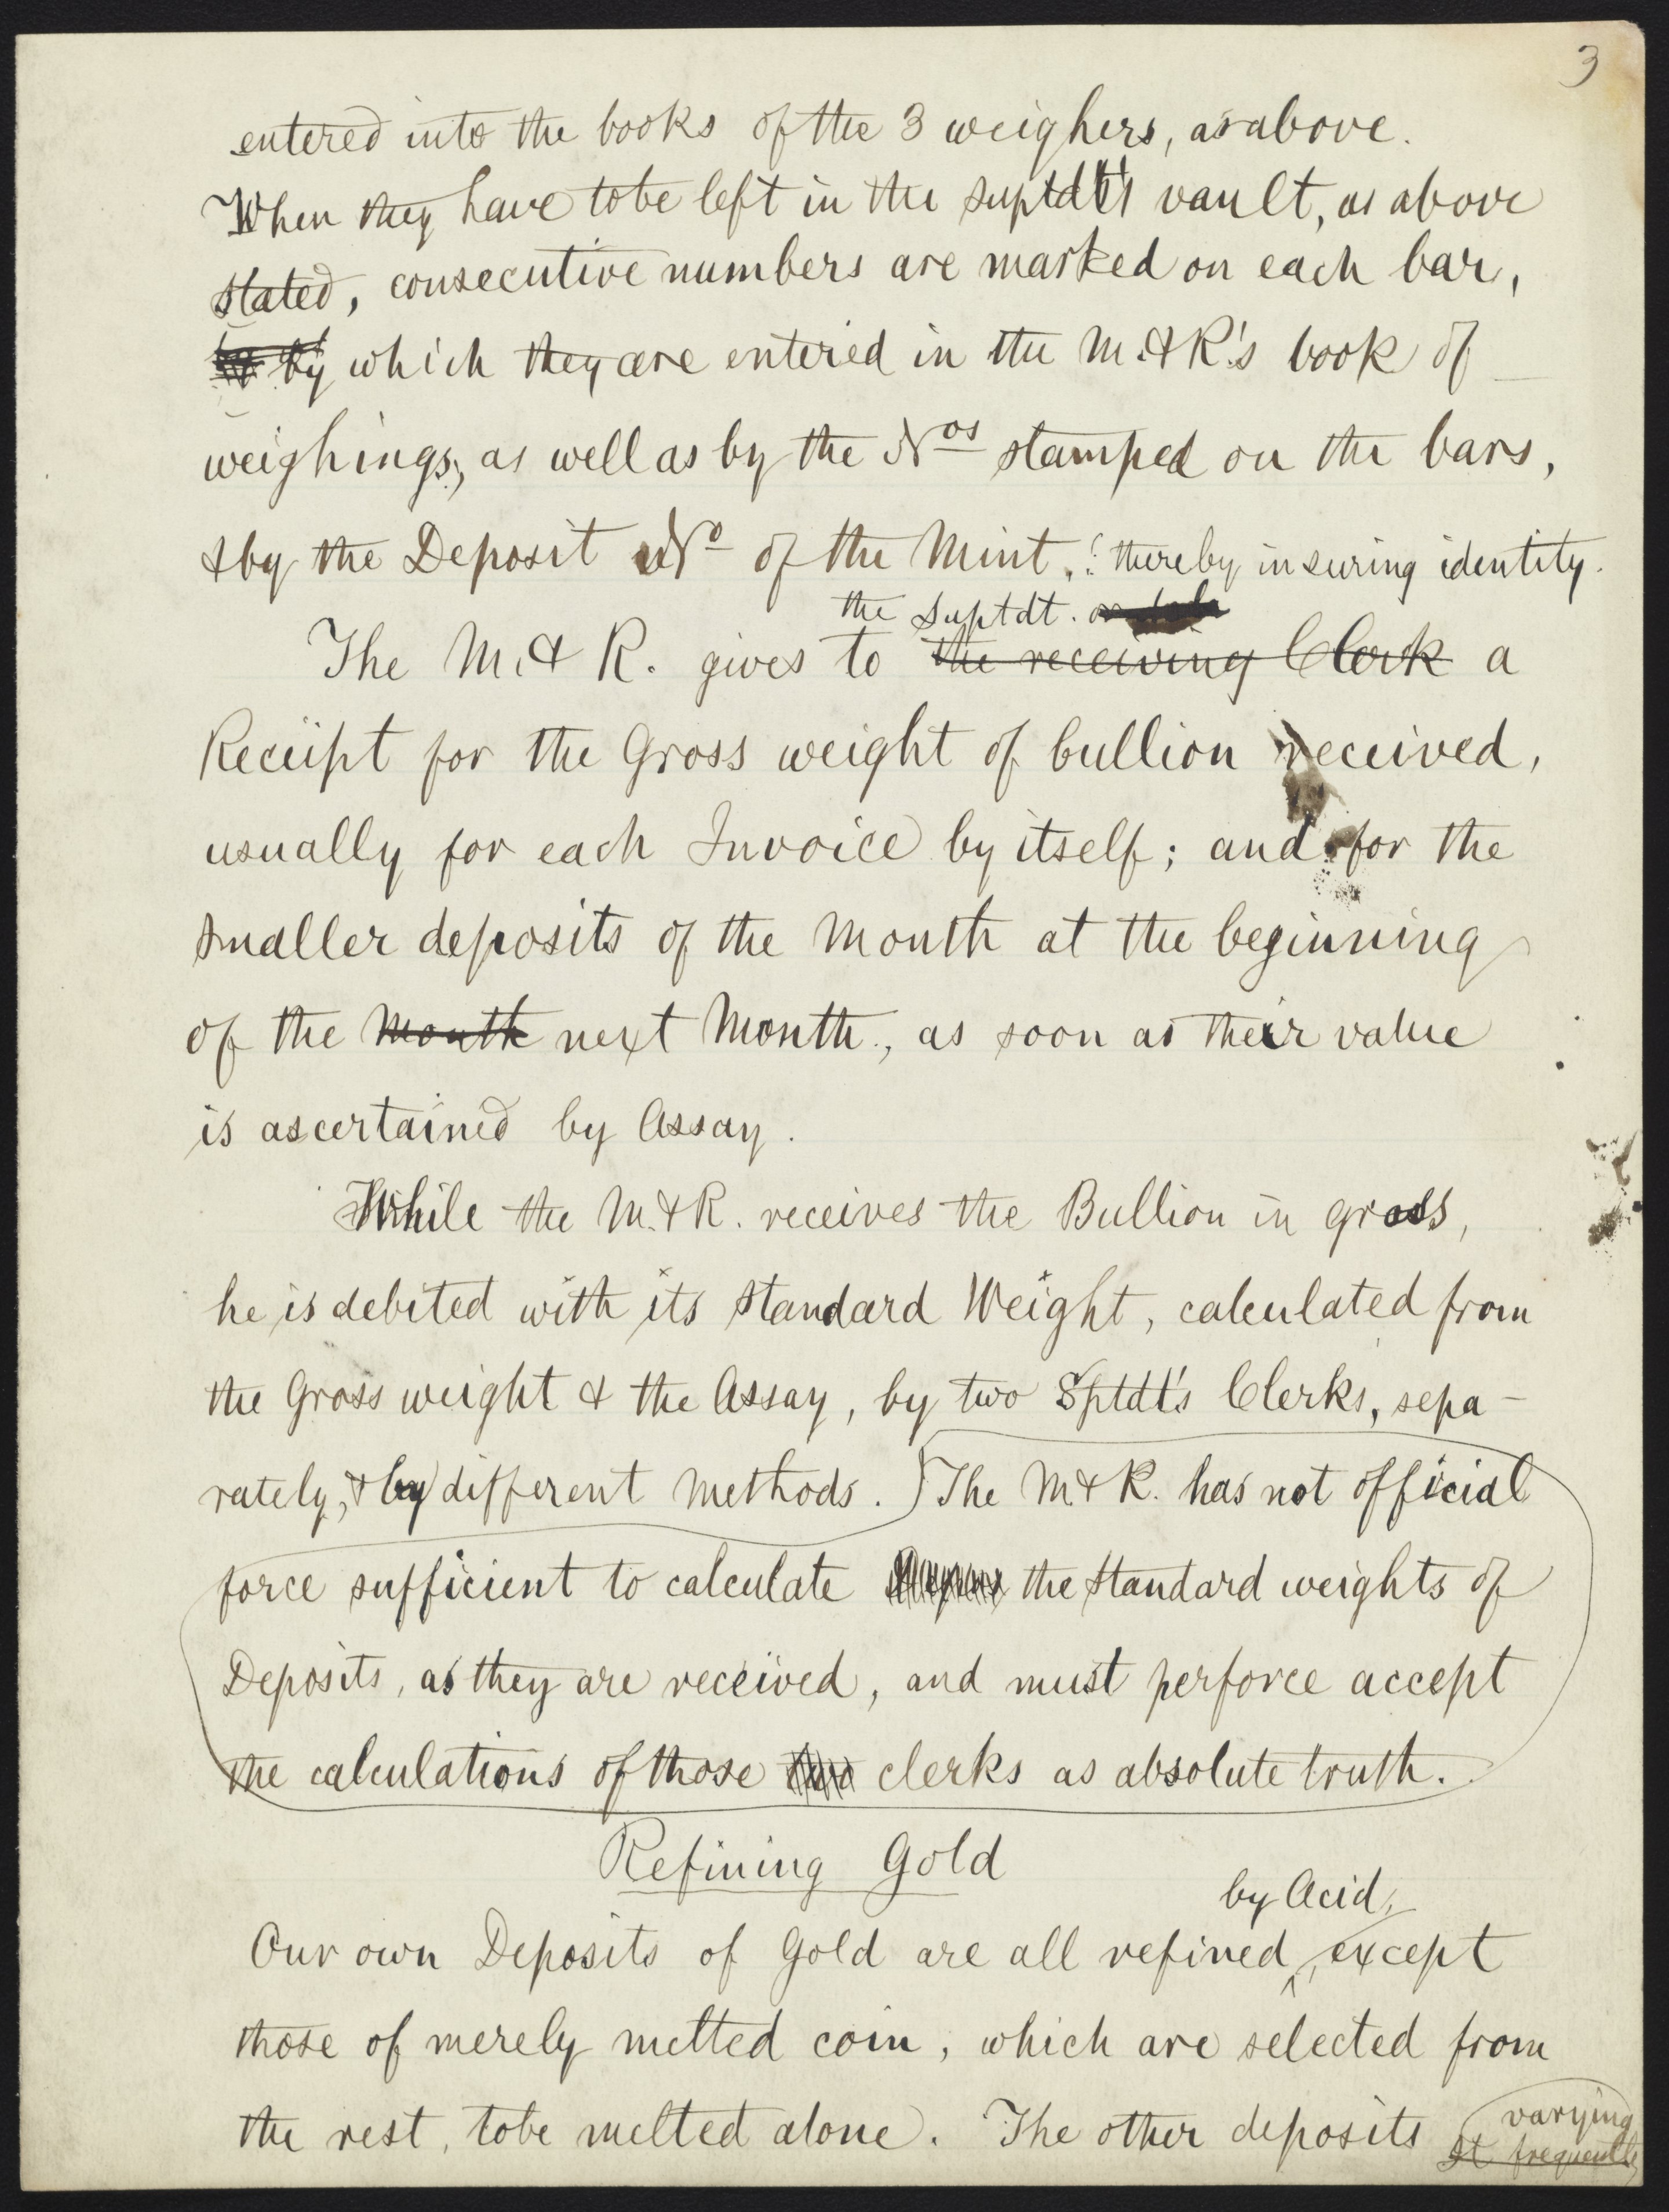 3
entered into the books of the 3 weighers, as above.
When they have to be left in the suptdt's vault, as above
stated, consecutive numbers are marked on each bar,
by which they are entered in the M. & R's book of
weighings, as well as by the Nos stamped on the bars,
& by the Deposit No of the Mint, thereby insuring identity.
the Suptdt.
The M. & R. gives to the receiving Clerk a
Receipt for the Gross weight of bullion received,
usually for each Invoice by itself; and for the
smaller deposits of the Month at the beginning
of the Month next Month, as soon as their value
is ascertained by Assay.
While the M. & R. receives the Bullion in gross,
he is debited with its standard Weight, calculated from
the Gross weight & the Assay, by two Sptdt's Clerks, sepa-
rately, & by different methods. The M. & R. has not official
force sufficient to calculate the standard weights of
Deposits, as they are received, and must perforce accept
the calculations of those two clerks as absolute truth.
Refining Gold
by Acid,
Our own Deposits of Gold are all refined, except
those of merely melted coin, which are selected from
the rest, to be melted alone. The other deposits
varying
frequently